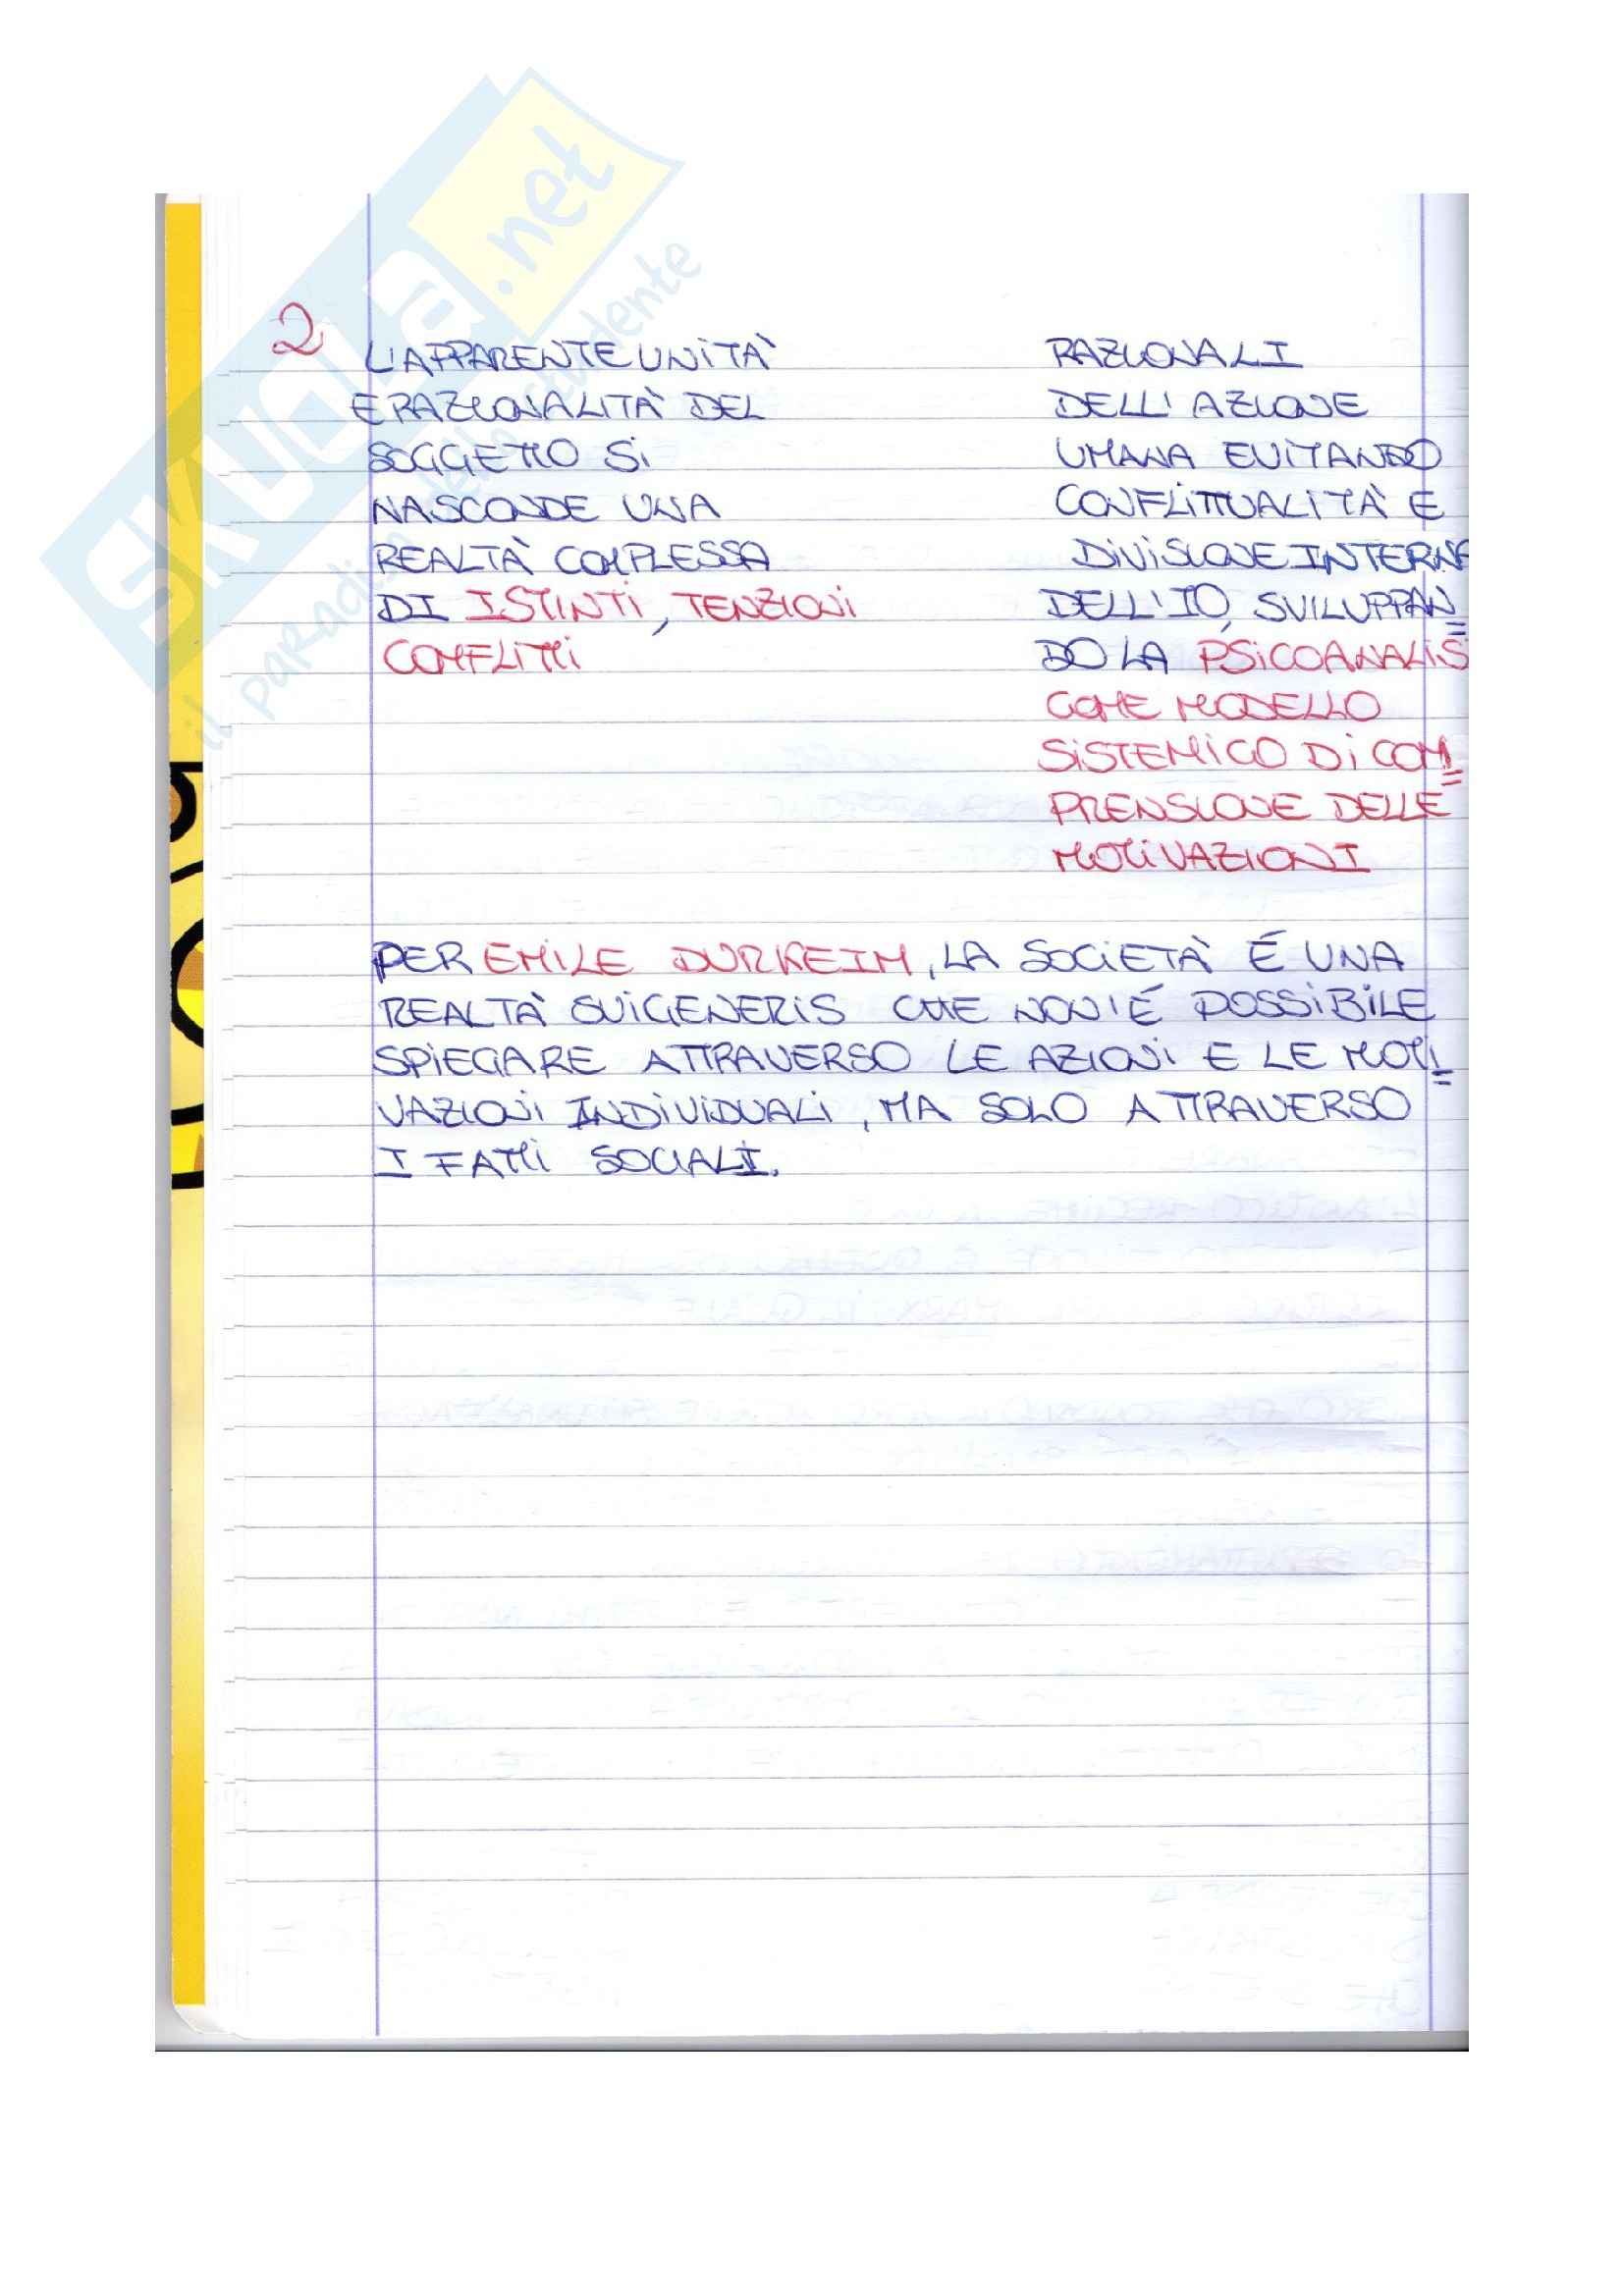 SKUOLa.net
il paradiso dello studente
2
L'APPARENTE UNITÀ
E RAZIONALITÀ DEL
SOGGETTO SI
NASCONDE UNA
REALTÀ COMPLESSA
DI ISTINTI, TENZIONI
CONFLITTI
RAZIONALI
DELL'AZIONE
UMANA EVITANDO
CONFLITTUALITÀ E
DIVISIONE INTERNA
DELL'IO, SVILUPPAN=
DO LA PSICOANALIS
COME MODELLO
SISTEMICO DI COM=
PRENSIONE DELLE
MOTIVAZIONI
PER EMILE DURKEIM, LA SOCIETÀ É UNA
REALTÀ SUIGENERIS CHE NON'É POSSIBILE
SPIEGARE ATTRAVERSO LE AZIONI E LE MOTI=
VAZIONI INDIVIDUALI, MA SOLO ATTRAVERSO
I FATTI SOCIALI.